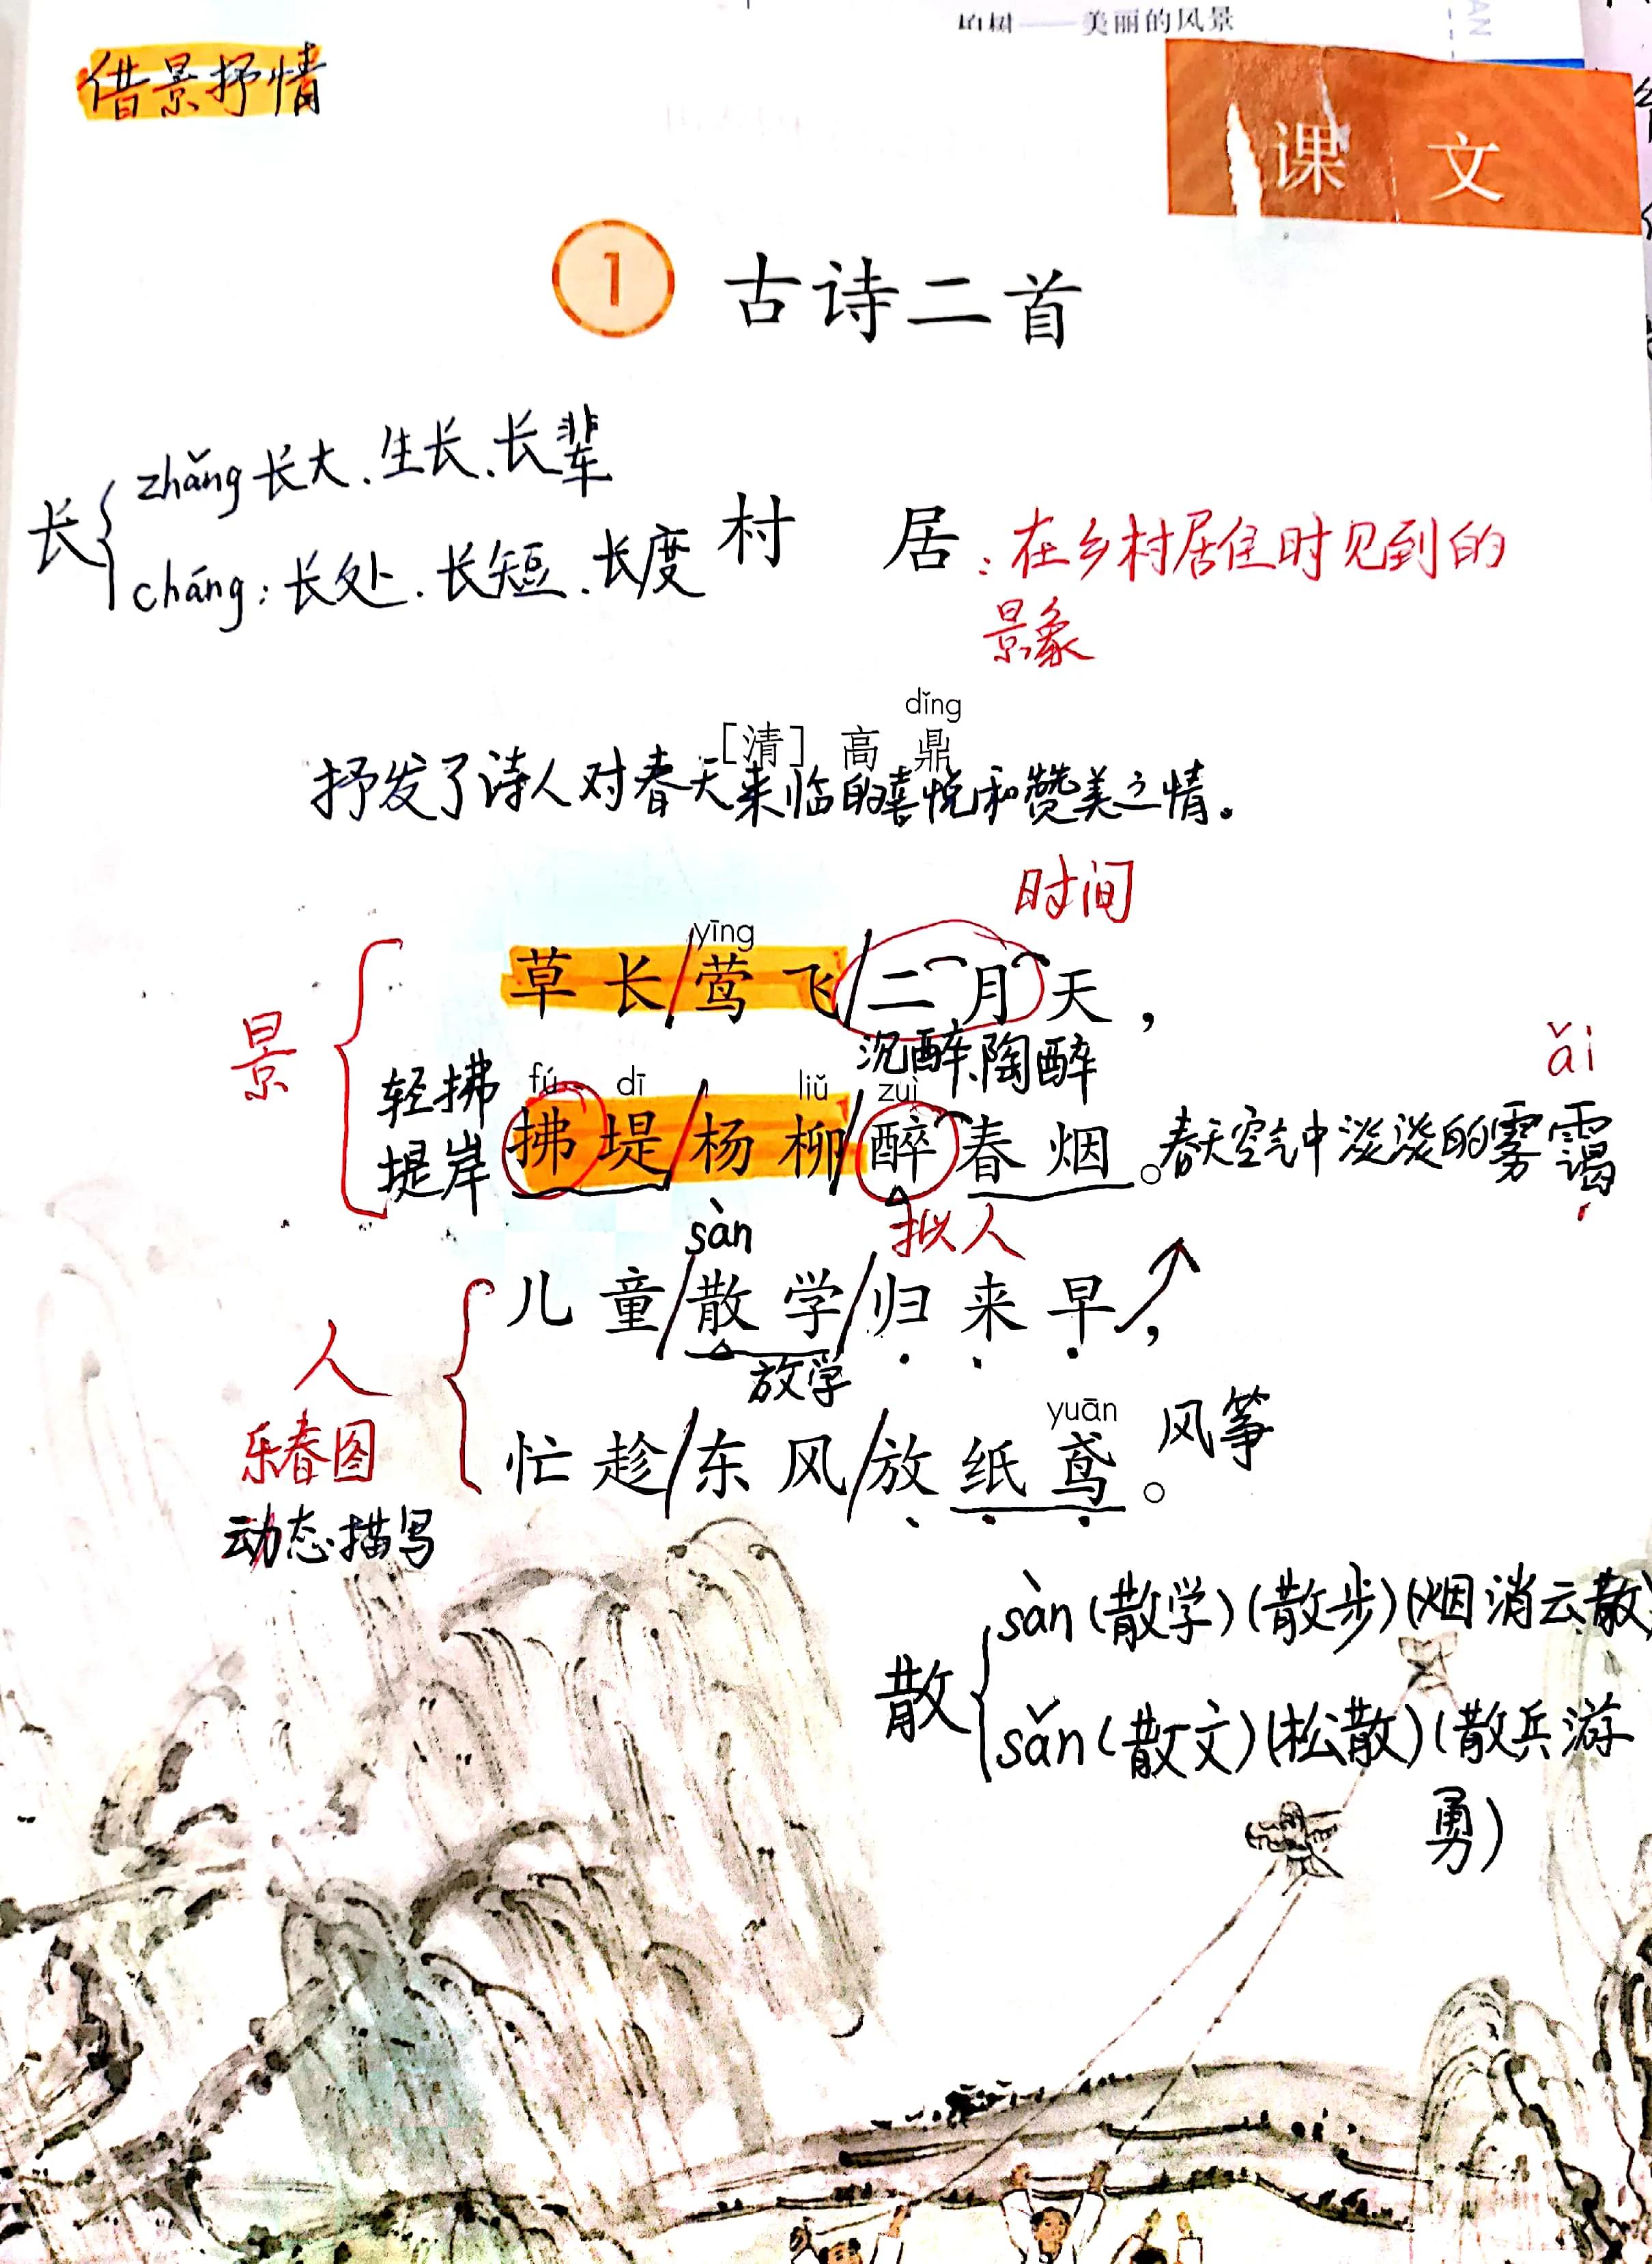 柏树——美丽的风景
借景抒情
课文
1 古诗二首
长
zhǎng 长大、生长、长辈
cháng：长处、长短、长度
村居：在乡村居住时见到的
景象
dǐng
[清] 高鼎
抒发了诗人对春天来临的喜悦和赞美之情。
时间
yīng
草长/莺飞/二月天，
景
沉醉、陶醉
ǎi
轻拂
堤岸
fú dī liǔ zuì
拂堤/杨柳/醉春烟。春天空气中淡淡的雾霭
sàn
拟人
儿童/散学/归来早，
人
放学
yuān
忙趁/东风/放纸鸢。风筝
乐春图
动态描写
散
sàn (散学) (散步) (烟消云散)
sǎn (散文) (松散) (散兵游
勇)